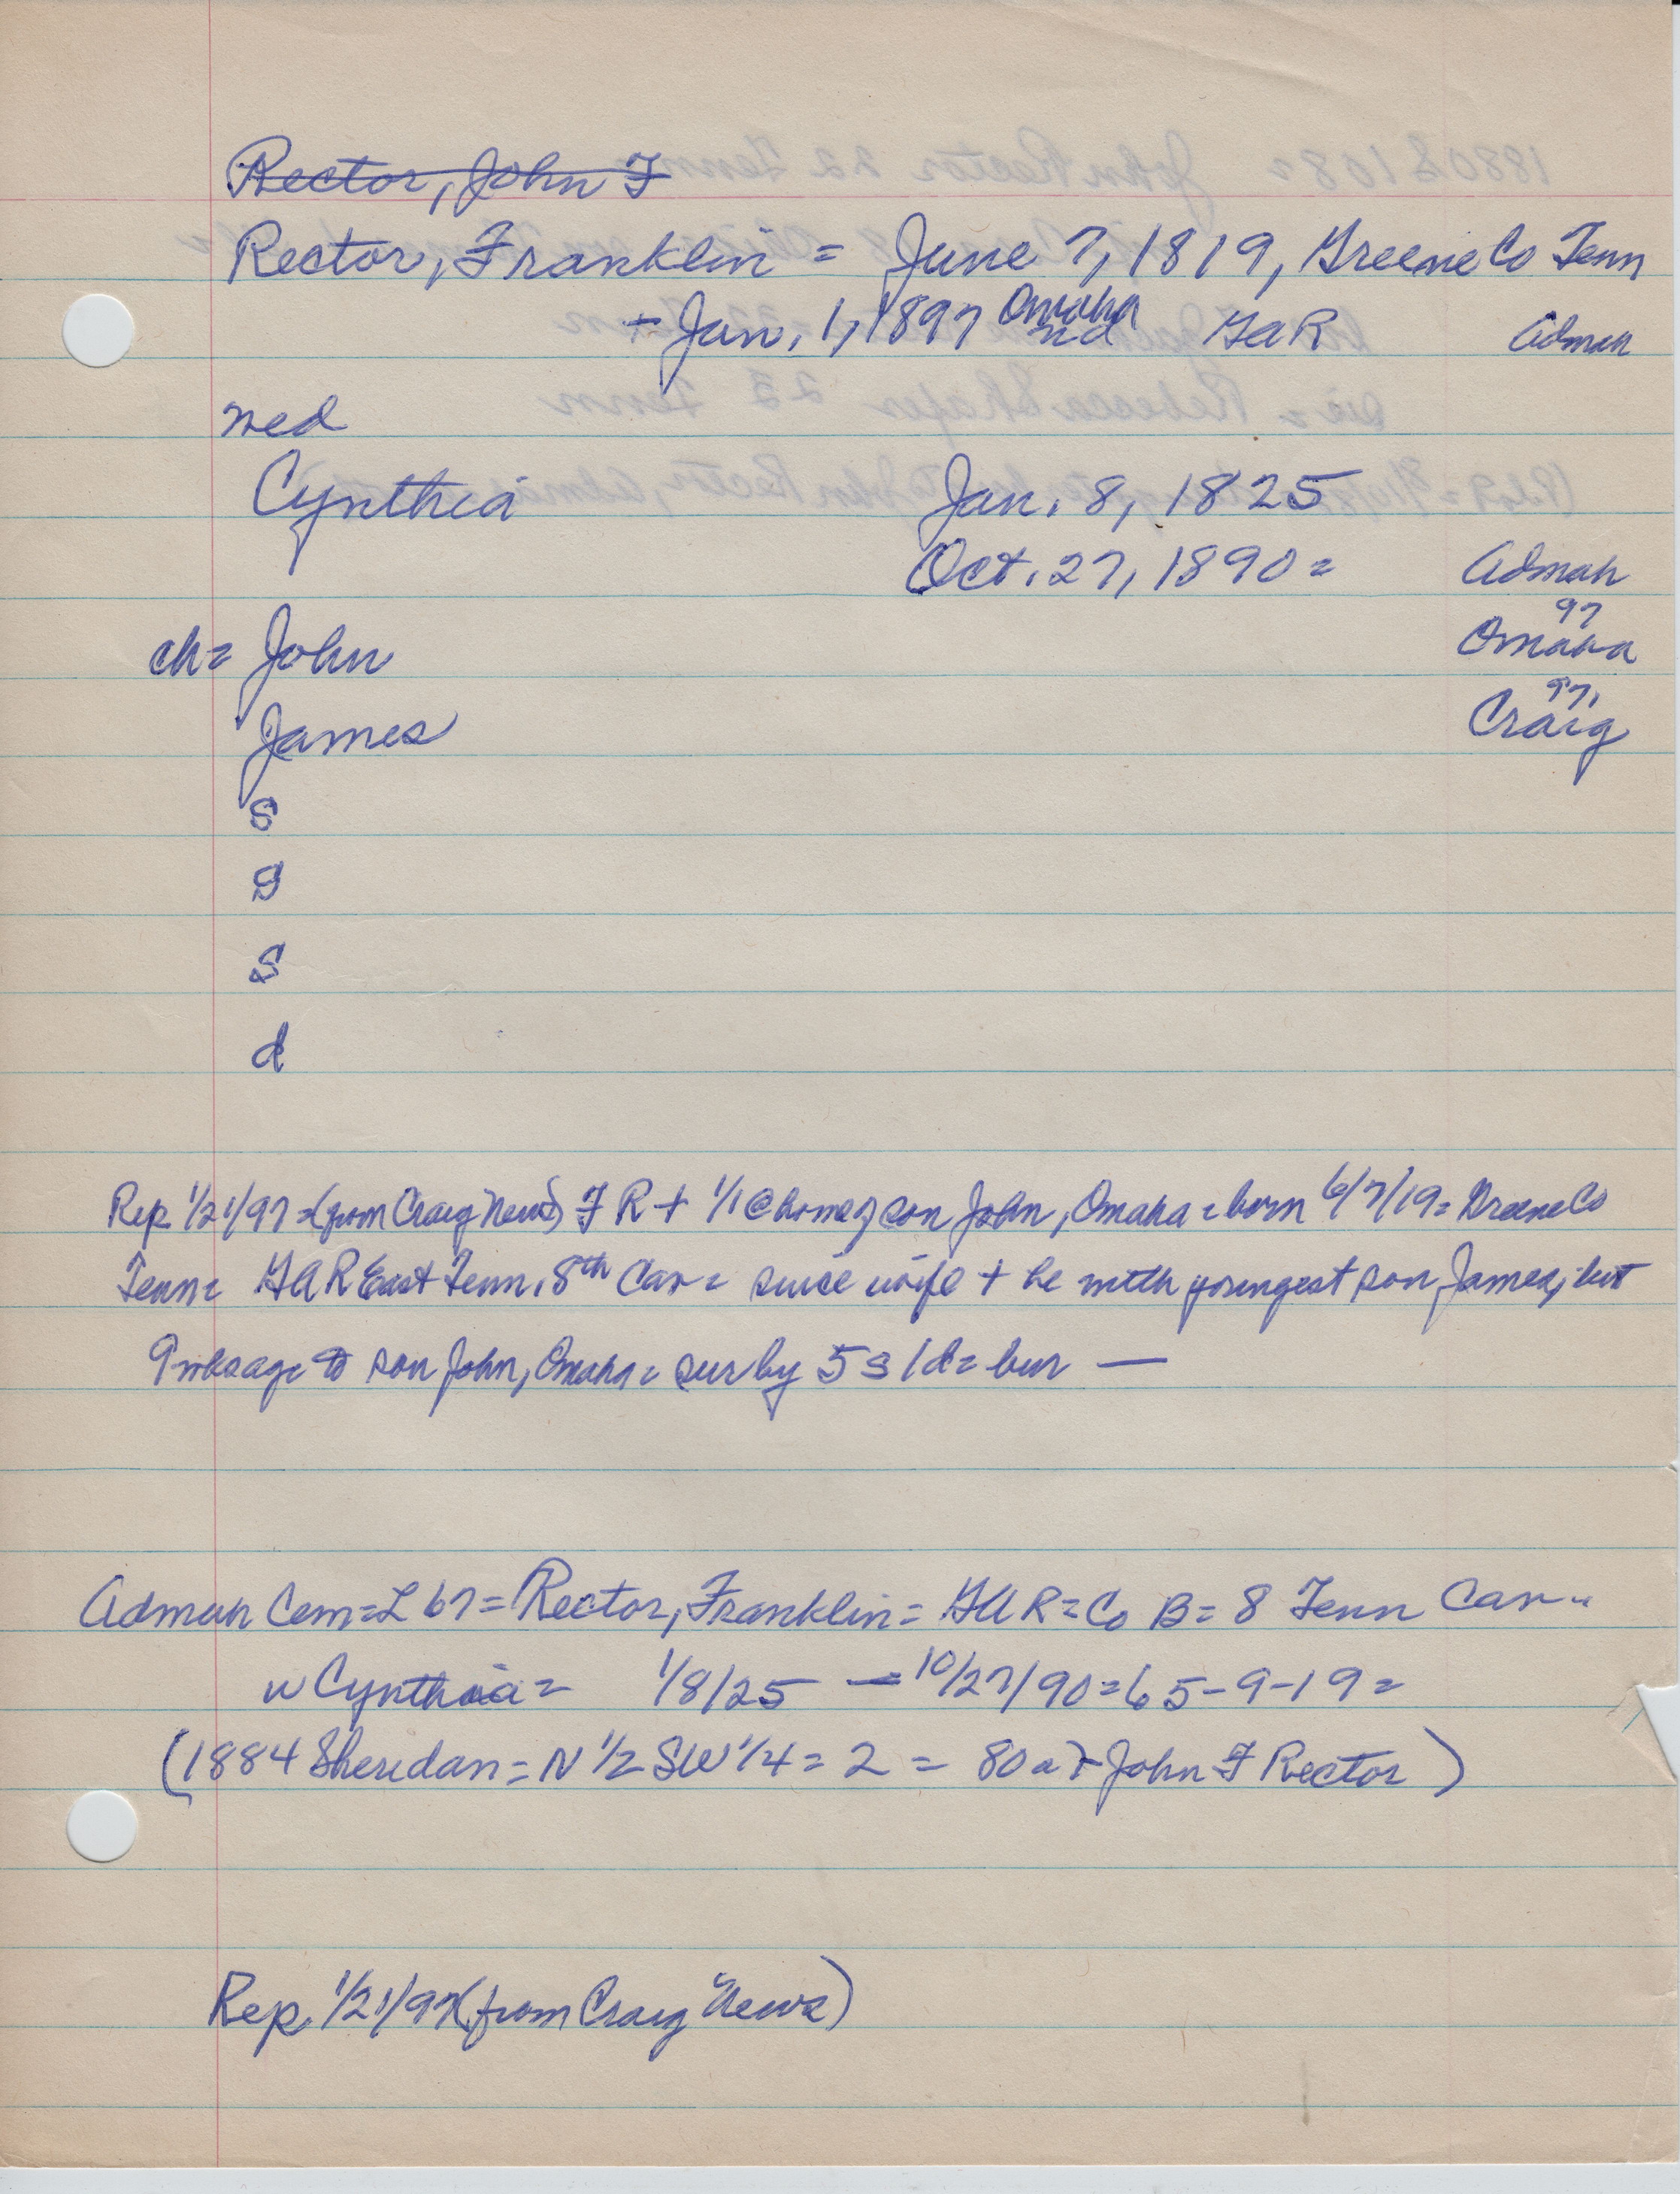 Rector, John F
Rector, Franklin = June 7, 1819, Greene Co Tenn
+ Jan. 1, 1897 Omaha GAR Admah
wed
Cynthia Jan. 8, 1825
Oct. 27, 1890 = Admah
ch = John 97 Omaha
James 97, Craig
S
S
S
d
Rep 1/21/97 = (from Craig News) F R + 1/1 @ home of son John, Omaha = born 6/7/19 = Greene Co
Tenn = GAR East Tenn. 8th Cav = since wife + he with youngest son James, but
9 wks ago to son John, Omaha = sur by 5 s 1 d = bur —
Admah Cem = L 67 = Rector, Franklin = GAR = Co B = 8 Tenn Cav -
w Cynthia = 1/8/25 — 10/27/90 = 65-9-19 =
(1884 Sheridan = N 1/2 SW 1/4 = 2 = 80 a John F Rector)
Rep. 1/21/97 (from Craig News)